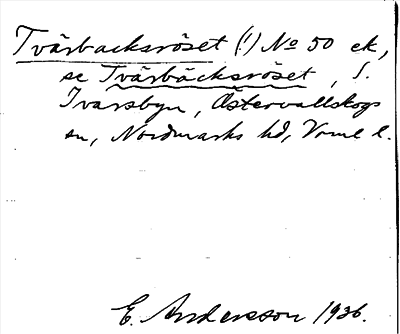 Tvärbacksröset (!) No 50 ek,
se Tvärbäcksröset, S.
Ivarsbyn, Östervallskogs
sn, Nordmarks hd, Vrml l.
E. Andersson 1936.